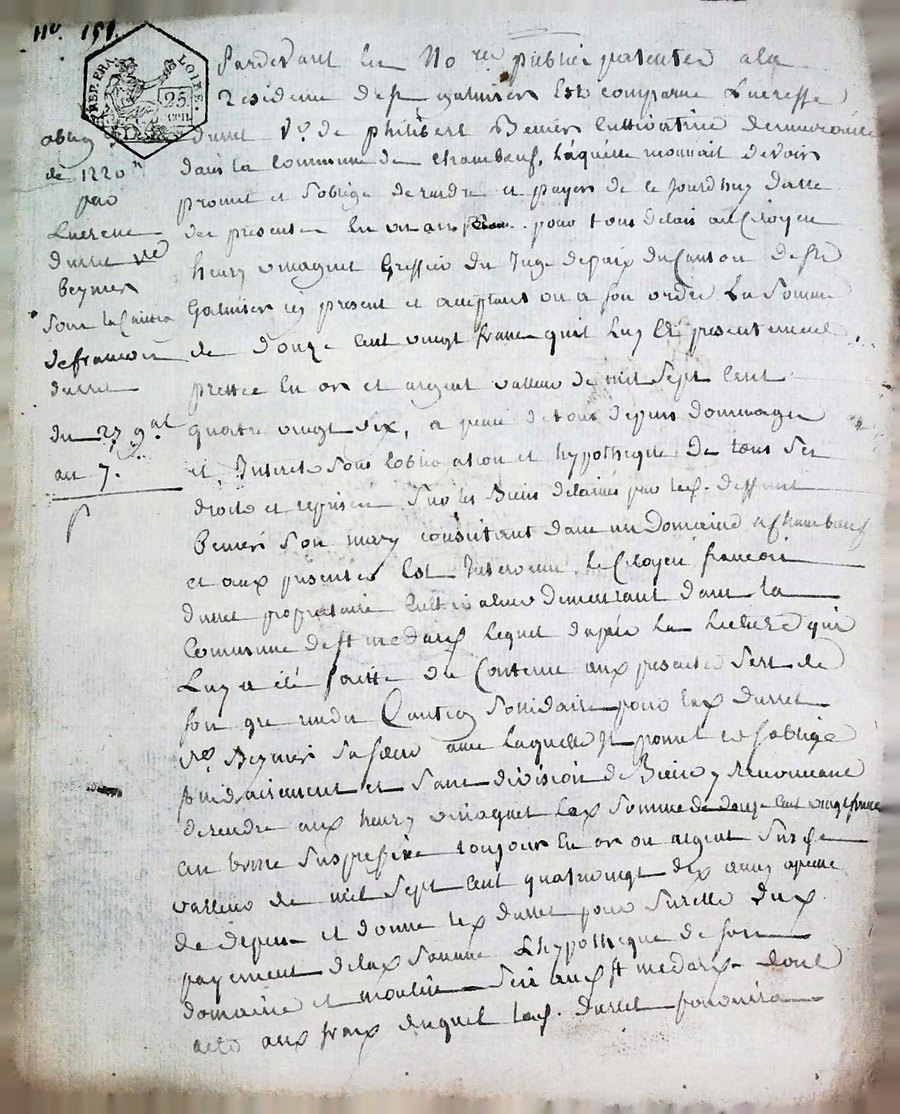 no. 151.
RÉP. FRA.
LOIRE.
25
CEN.
Pardevant les No.res publics patentés a la
Residence de st galmier Est comparue Lucresse
durret Ve. de philibert Beynier Cultivatrice demeurante
dans la Commune de Chambœuf, Laquelle reconnait devoir
promet et s'oblige de rendre et payer de ce jourdhuy datte
des presentes En un an pour tous delais au Citoyen
henry magnet Greffier du Juge de paix du Canton de st
Galmier icy present et acceptant ou a son ordre La Somme
de douze Cent vingt francs quil Luy a presentement
prettée En or et argent valleur de mil Sept Cent
quatre vingt dix, a peine de tous depens dommages
et Interets Sous L'obligation et hypotheque de tous Ses
droits et reprises Sur les Biens delaissés par led. deffunt
Beynier Son mary consistant dans un Domaine a Chambœuf
et aux presentes Est Intervenu Le Citoyen françois
durret proprietaire Cultivateur demeurant dans la
Commune de st medard Lequel d'après La Lecture qui
Luy a été faitte du Contenu aux presentes Sert de
son gre rendu Caution Solidaire pour lad. durret
Ve. Beynier Sa sœur avec Laquelle Il promet et s'oblige
solidairement et Sans division de Biens y renonceant
de rendre aud. henry magnet Lad. Somme de douze Cent vingt francs
au terme Susprefixe toujours En or ou argent Sur le
valleur de mil Sept Cent quatrevingt dix aussy a peine
de depens et donne led. durret pour Surette dud.
payement de lad. Somme L'hypotheque de son
domaine et moulin Situé aud. st medard dont
acte aux fraix duquel led. durret
oblig.
de 1220 #
par
Lucresse
durret Ve
Beynier
Sous la Caution
de françois
durret
du 27 9.al
an 7.